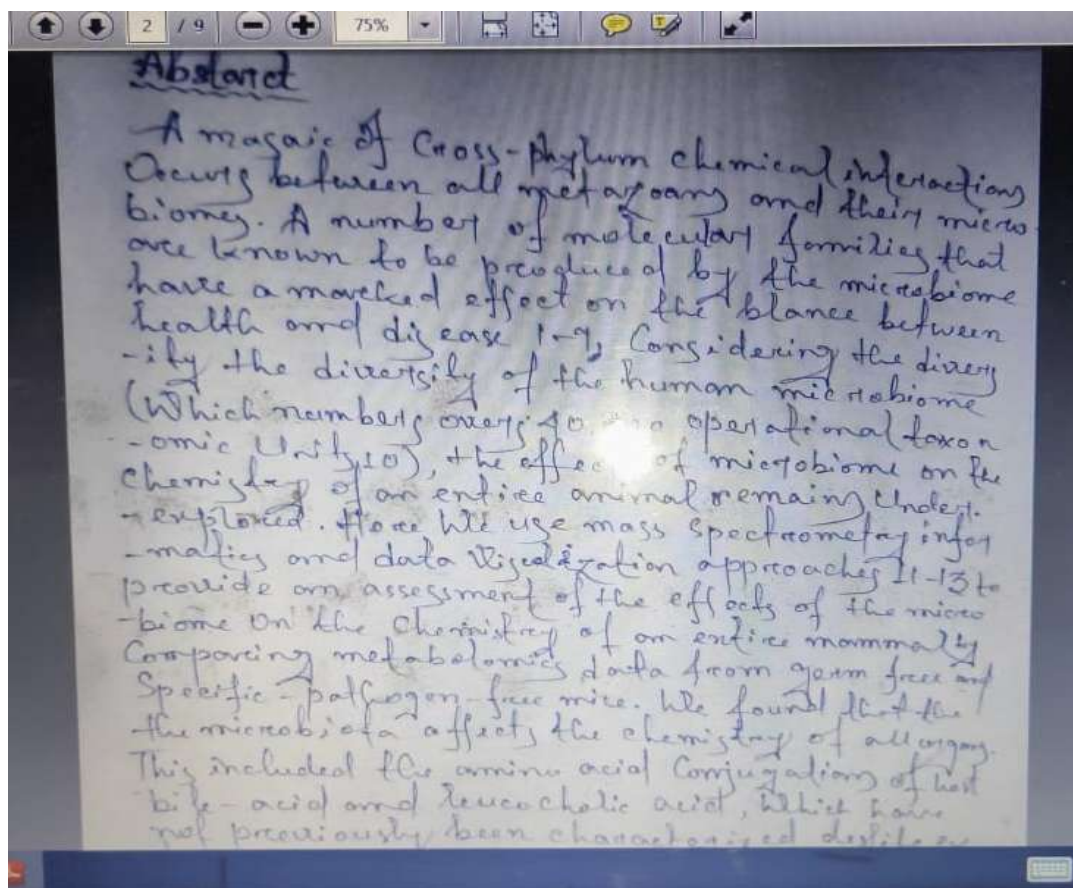 2 / 9 75%
Abstarct
A masaic of Cross-phylum chemical interactions
Occurs between all metazoans and their micro
biomes. A number of molecular families that
are known to be produced by the microbiome
have a marked effect on the blance between
health and disease 1-9, Considering the divers
-ity the diversity of the human microbiome
(Which numbers overs 40 operational taxon
-omic Units10), the effec of microbiome on the
Chemistry of an entire animal remains Under.
-explored. Here We use mass spectrometry infor
-matics and data Visealization approaches 11-13 to
provide an assessment of the effects of the micro
-biome on the Chemistry of an entire mammal by
Comparing metabolomics data from germ free and
Specific-pathogen-free mice. We found that the
the microbiota affects the chemistry of all organs.
This included the amino acid Conjugations of host
bile-acid and which have
not previously been characterized despite